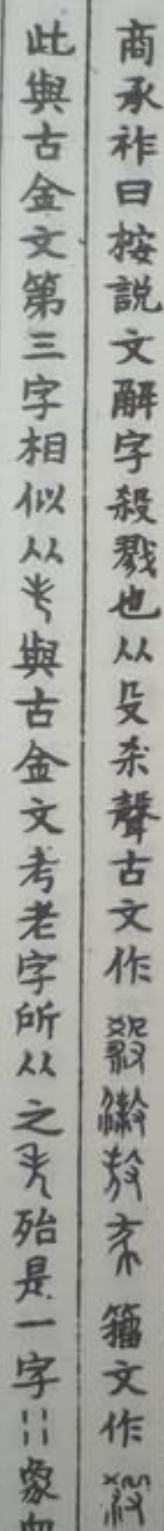 商承祚曰按說文解字殺戮也从殳杀聲古文作籀文作
此與古金文第三字相似从與古金文考老字所从之殆是一字象